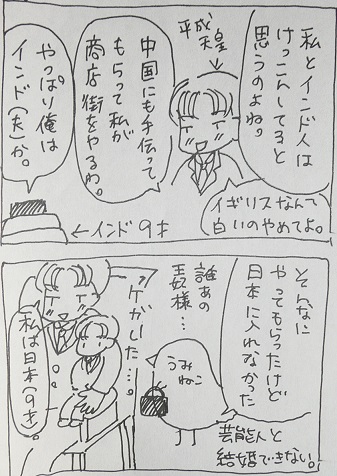 私とインド人は
けっこんしてると
思うのよね。
平成
天皇
イギリスなんて
白いのやめてよ。
中国にも手伝って
もらって私が
商店街をやるわ。
やっぱり俺は
インド(夫)か。
←インド9才
そんなに
やってもらったけど
日本に入れなかった
芸能人と
結婚できない。
うみ
ねこ
誰あの
王妃様…
ケガした…。
私は日本(9才)。